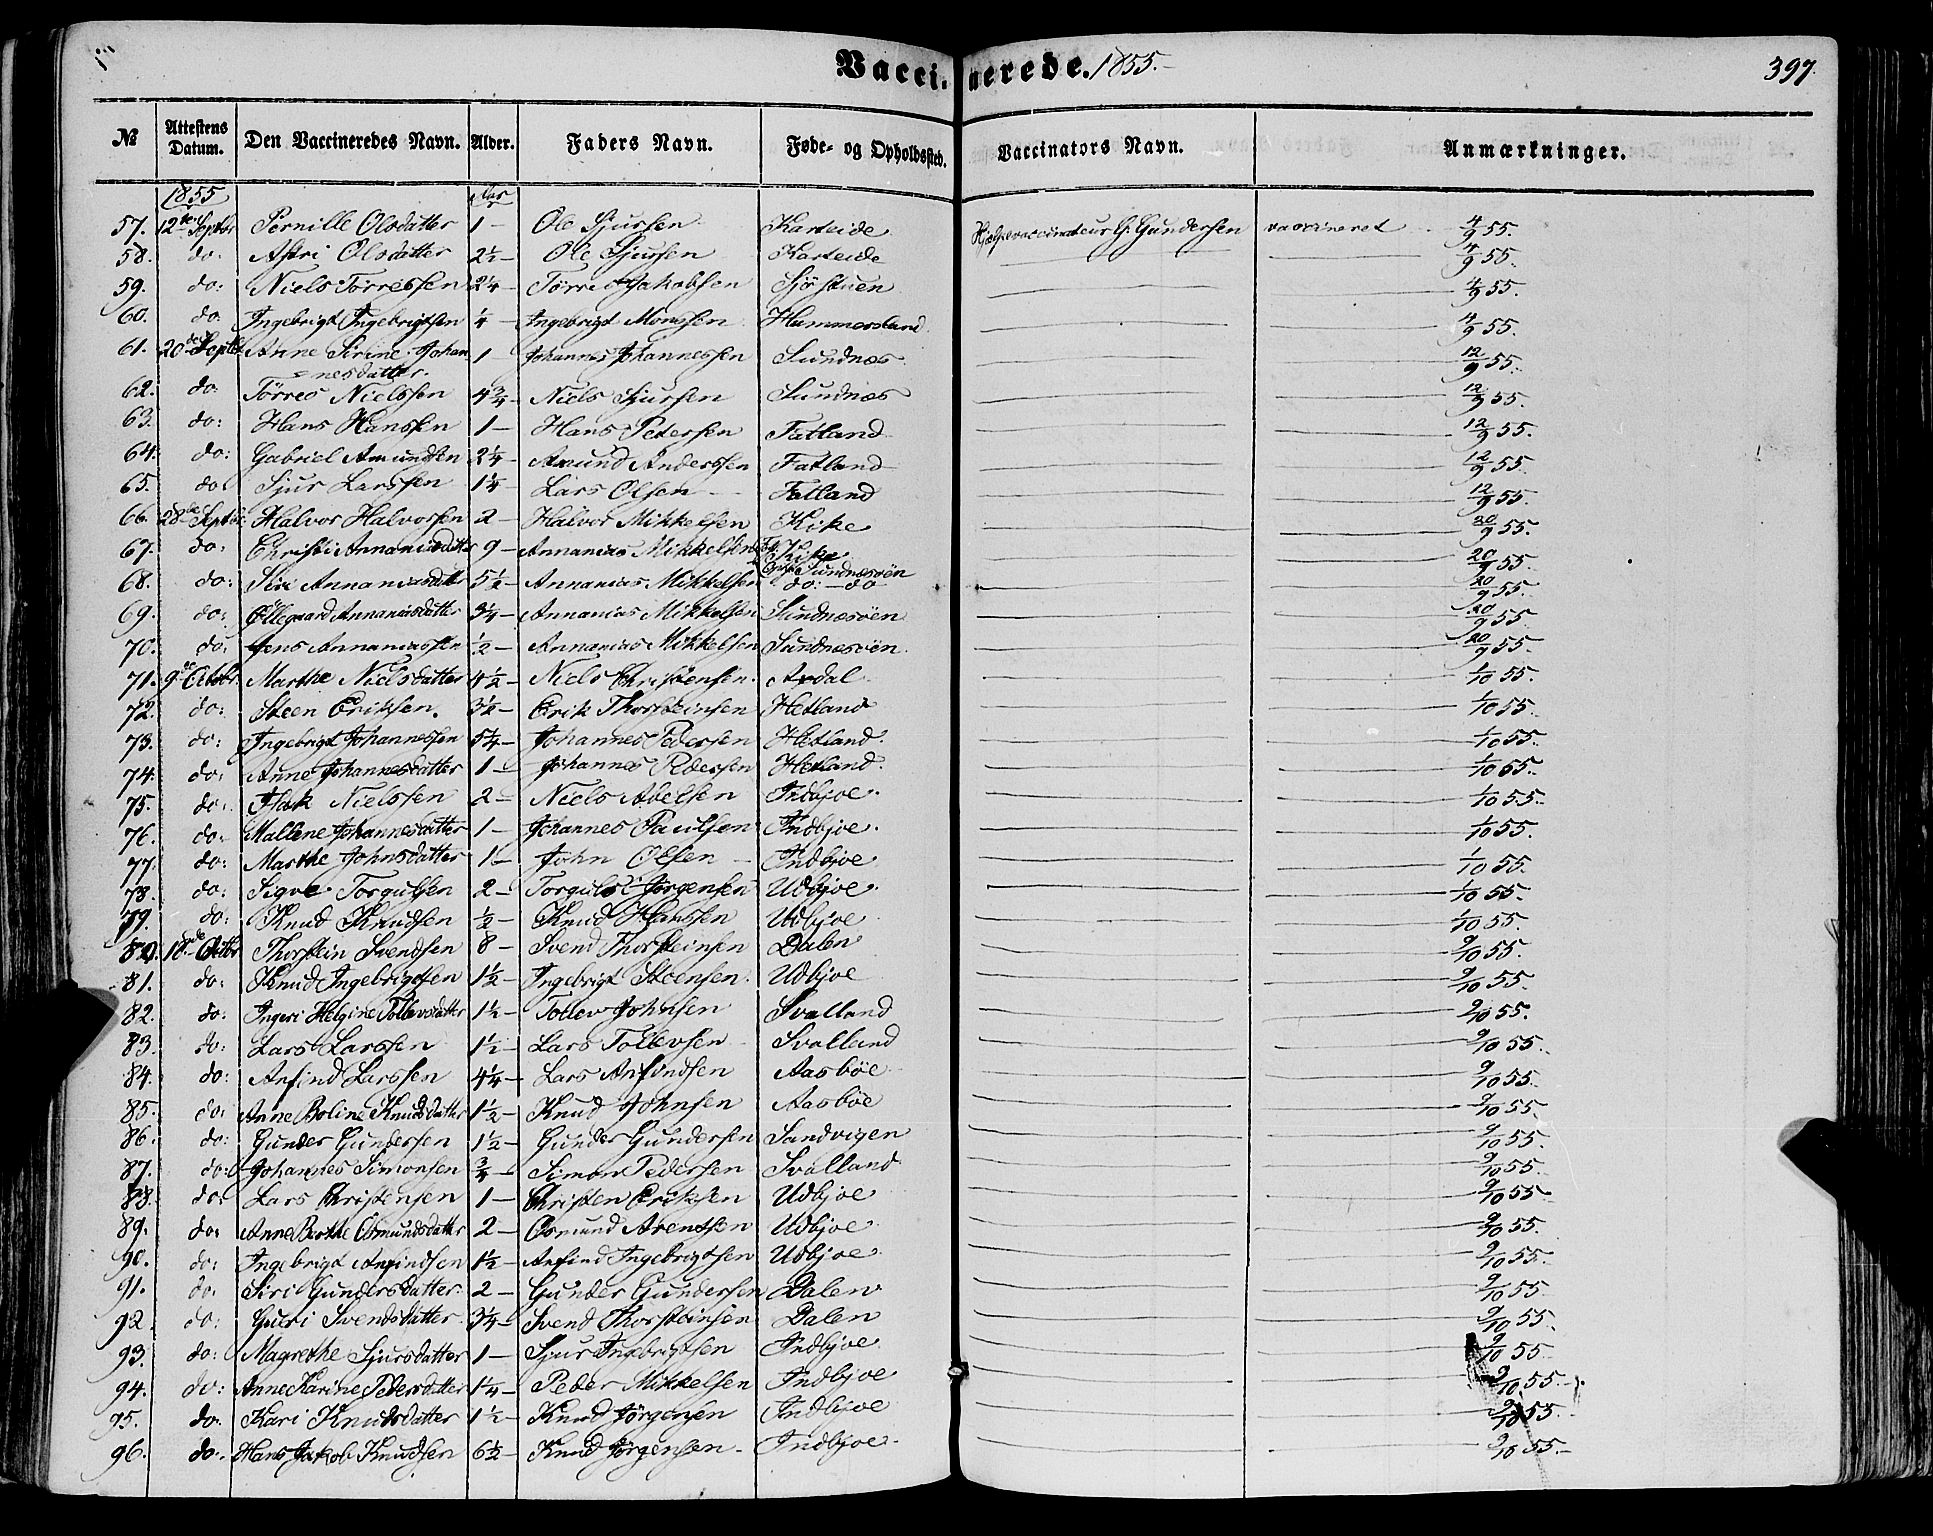 Vaccinerede. 1855.
397.
№ Attestens Datum. Den Vaccineredes Navn. Alder. Faders Navn. Føde- og Opholdssted. Vaccinators Navn. Anmærkninger.
1855 Aar
57. 12te Septbr Pernille Olsdatter 1 — Ole Sjursen Karteide Hjælpevaccinateur G. Gundersen vaccineret 4/9 55.
58. do: Astri Olsdatter 2½ — Ole Sjursen Karteide 4/9 55.
59. do: Niels Tørressen 2¼ — Tørres Jakobsen Sjöstuen 4/9 55.
60. do Ingebrigt Ingebrigtsen ¼ — Ingebrigt Monssen Hammersland 4/9 55.
61. 20de Septbr Anne Serine Johan 1 — Johannes Johannessen Sundnæs 12/9 55.
= nesdatter.
62. do. Törres Nielssen 4¾ — Niels Sjursen Sundnæs 12/9 55.
63. do: Hans Hanssen 1 — Hans Petersen Fatland 12/9 55.
64. do: Gabriel Amundsen 2¼ — Amund Anderssen Fatland 12/9 55.
65. do: Sjur Larssen 1¼ — Lars Olsen Fatland 12/9 55.
66. 28de Septbr. Halvor Halvorsen 2 — Halvor Mikkelsen Kike 20/9 55.
67. do: Christi Annaniasdatter 9 — Annanias Mikkelsen Kike Sundnæsöen 20/9 55.
68. do: Siri Annaniasdatter 5½ — Annanias Mikkelsen do: — do 20/9 55.
69. do: Ellegaard Annaniasdatter 3¼ — Annanias Mikkelsen Sundnæsöen 20/9 55.
70. do: Jens Annaniassen ½ — Annanias Mikkelsen Sundnæsöen. 20/9 55.
71. 9de Octobr. Marthe Nielsdatter 1½ — Niels Christensen. Aadal 1/10 55.
72. do: Steen Eriksen. 3½ — Erik Thorsteinsen Hetland 1/10 55.
73. do: Ingebrigt Johannessen 5¼ — Johannes Pedersen Hetland. 1/10 55.
74. do: Anne Johannesdatter 1 — Johannes Pedersen Hetland. 1/10 55.
75. do: Isak Nielssen 2 — Niels Abelsen Indbjoe. 1/10 55.
76. do: Mallene Johannesdatter 1 — Johannes Paulsen Indbjoe. 1/10 55.
77. do: Marthe Johnsdatter 1 — John Olsen Indbjoe 1/10 55.
78. do: Sigve Torgulsen 2 — Torguls Jörgensen Udbjoe. 1/10 55.
79. do: Knud Knudsen ½ — Knud Hanssen Udbjoe 1/10 55.
80. 18de Octbr Thorstein Svendsen 8 — Svend Thorsteinsen Dalen 9/10 55.
81. do: Knud Ingebrigtsen 1½ — Ingebrigt Steensen. Udbjoe 9/10 55.
82. do: Ingeri Helgine Tollevsdatter 1½ — Tollev Johnsen Svalland 9/10 55.
83. do: Lars Larssen 1½ — Lars Tollevsen Svalland 9/10 55.
84. do: Anfind Larssen 4¼ — Lars Anfindsen Aasböe 9/10 55.
85. do: Anne Boline Knudsdatter 1½ — Knud Johnsen Aasböe 9/10 55.
86. do: Gunder Gundersen 1½ — Gunder Gundersen Sandvigen 9/10 55.
87. do: Johannes Simonsen ¾ — Simon Pedersen Svalland 9/10 55.
88. do: Lars Christensen 1 — Christen Eriksen Udbjoe 9/10 55.
89. do: Anne Berthe Osmundsdatter 2 — Osmund Arentsen Udbjoe 9/10 55.
90. do: Ingebrigt Anfindsen 1½ — Anfind Ingebrigtsen Udbjoe 9/10 55.
91. do. Siri Gundersdatter 2 — Gunder Gundersen Dalen 9/10 55.
92. do: Guri Svendsdatter 3¼ — Svend Thorsteinsen Dalen 9/10 55.
93. do: Magrethe Sjursdatter 1 — Sjur Ingebrigtsen Indbjoe 9/10 55.
94. do: Anne Karine Pedersdatter 1¼ — Peder Mikkelsen Indbjoe 9/10 55.
95. do: Kari Knudsdatter 1½ — Knud Jörgensen Indbjoe 9/10 55.
96. do: Hans Jakob Knudsen 6½ — Knud Jörgensen. Indbjoe. 9/10 55.